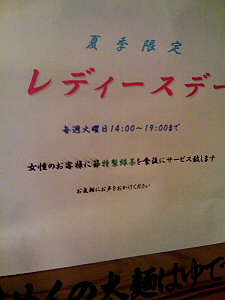 夏季限定
レディースデー
毎週火曜日14:00〜19:00まで
女性のお客様に 特製緑茶を食後にサービス致します
お気軽にお声をおかけください
の太麺はゆで